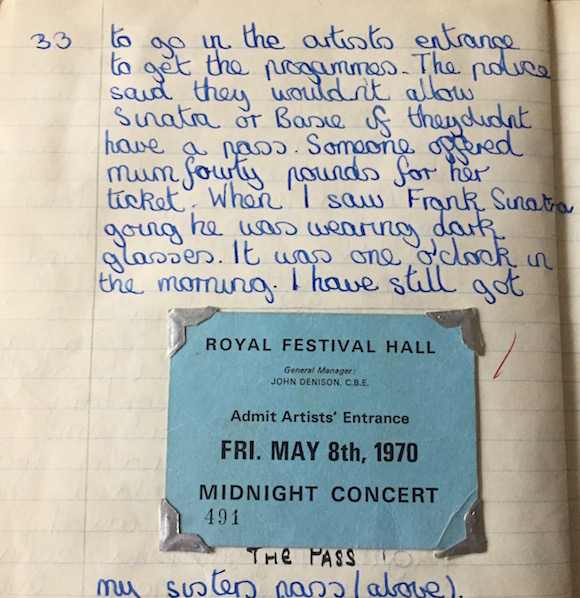 33 to go in the artists entrance
to get the progammes. The police
said they wouldn't allow
Sinatra or Basie if theydidnt
have a pass. Someone offered
mum fourty pounds for her
ticket. When I saw Frank Sinatra
going he was wearing dark
glasses. It was one o'clock in
the morning. I have still got
ROYAL FESTIVAL HALL
General Manager:
JOHN DENISON, C.B.E.
Admit Artists' Entrance
FRI. MAY 8th, 1970
MIDNIGHT CONCERT
491
THE PASS
my sisters pass (above).